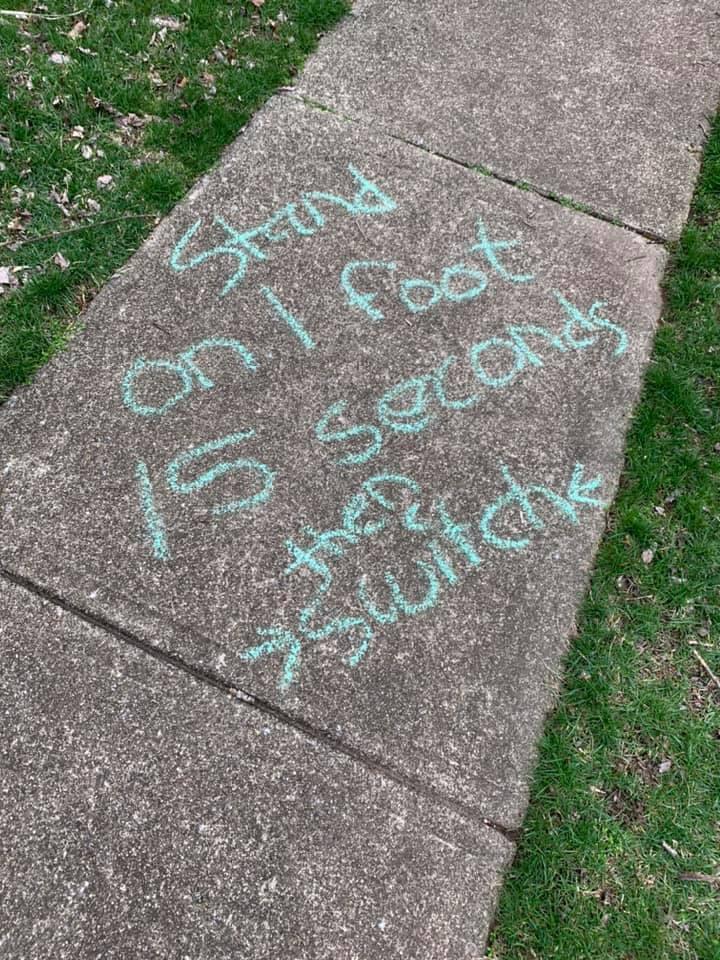 Stand
on 1 foot
15 seconds
then
switch